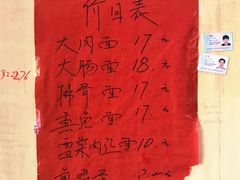 价目表
大肉面 17.元
大肠面 18.元
排骨面 17.元
熏鱼面 17.元
雪菜肉丝面 10.元